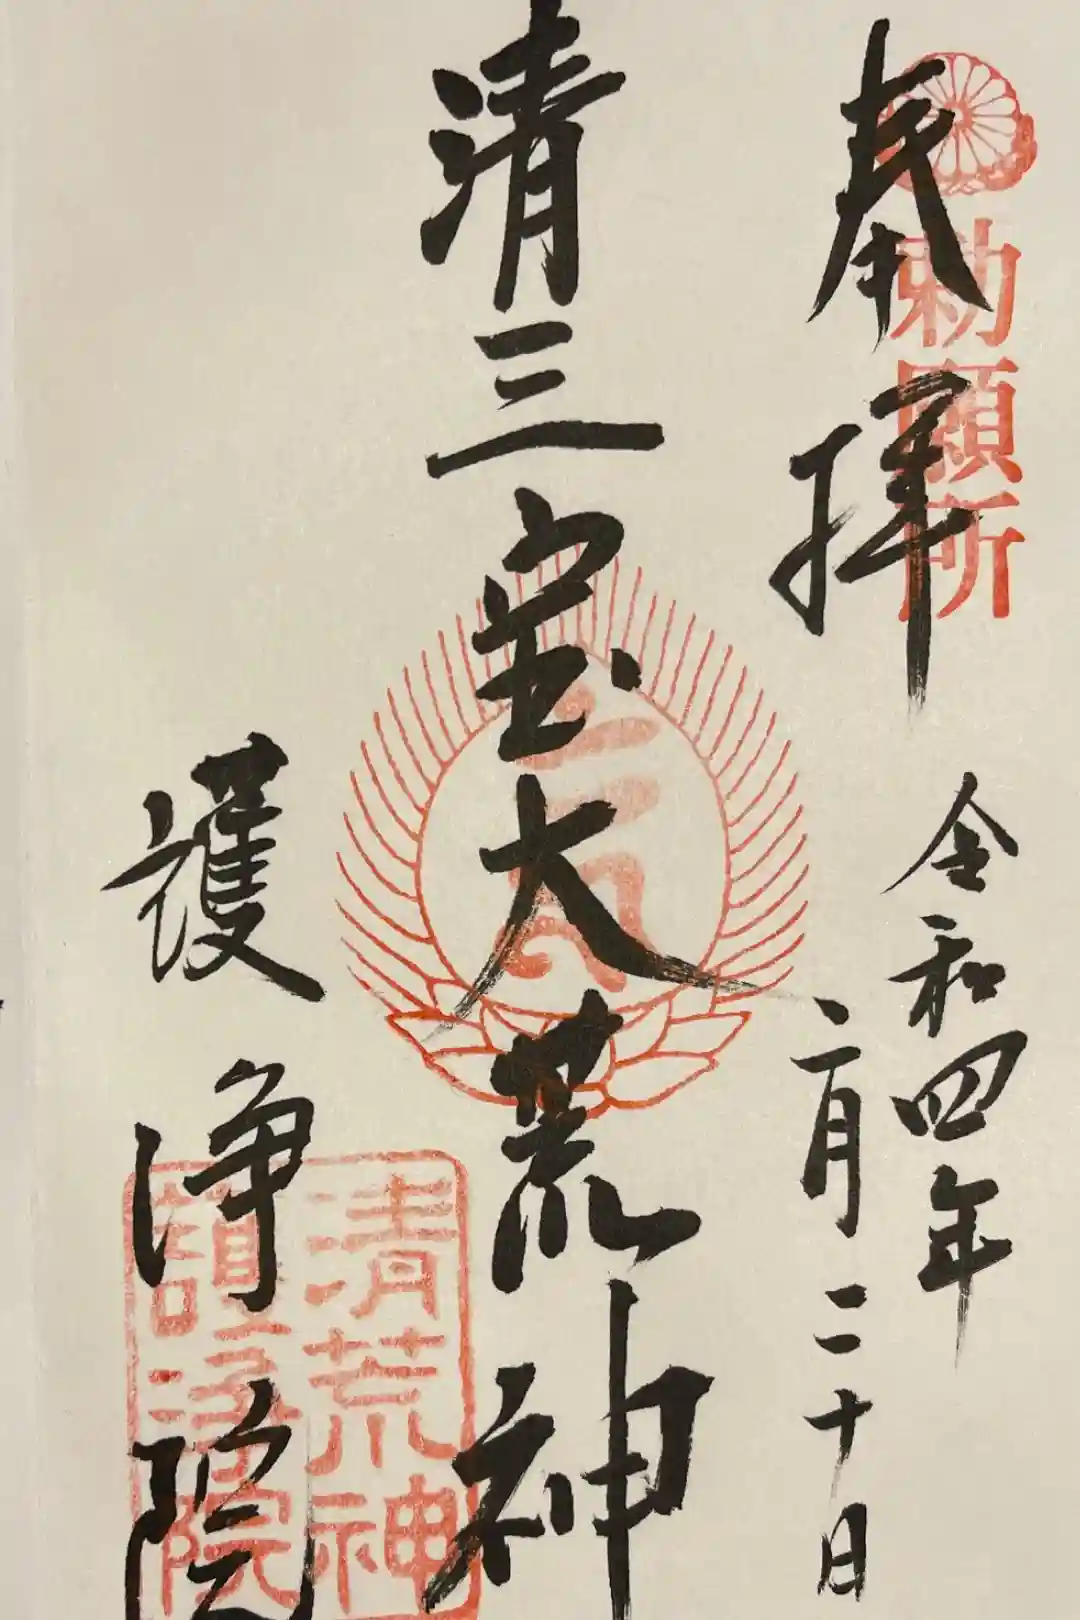 奉拝
勅願所
令和四年
二月二十日
清三宝大荒神
護浄院
清荒神
護浄院